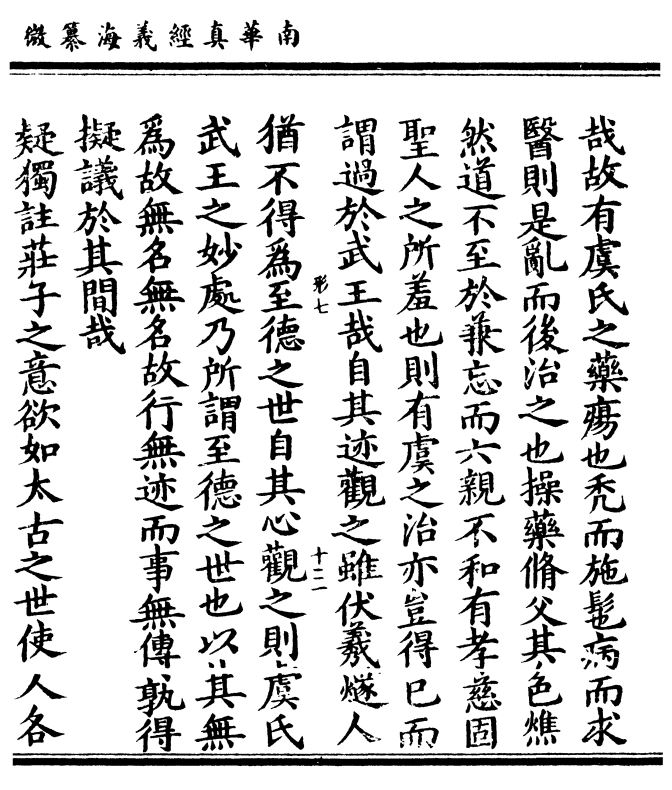 南華真經義海纂微
哉故有虞氏之藥瘍也禿而施髢病而求
醫則是亂而後治之也操藥脩父其色燋
然道不至於兼忘而六親不和有孝慈固
聖人之所羞也則有虞之治亦豈得已而
謂過於武王哉自其迹觀之雖伏羲燧人
形七
十二
猶不得爲至德之世自其心觀之則虞氏
武王之妙處乃所謂至德之世也以其無
爲故無名無名故行無迹而事無傳孰得
擬議於其間哉
疑獨註莊子之意欲如太古之世使人各